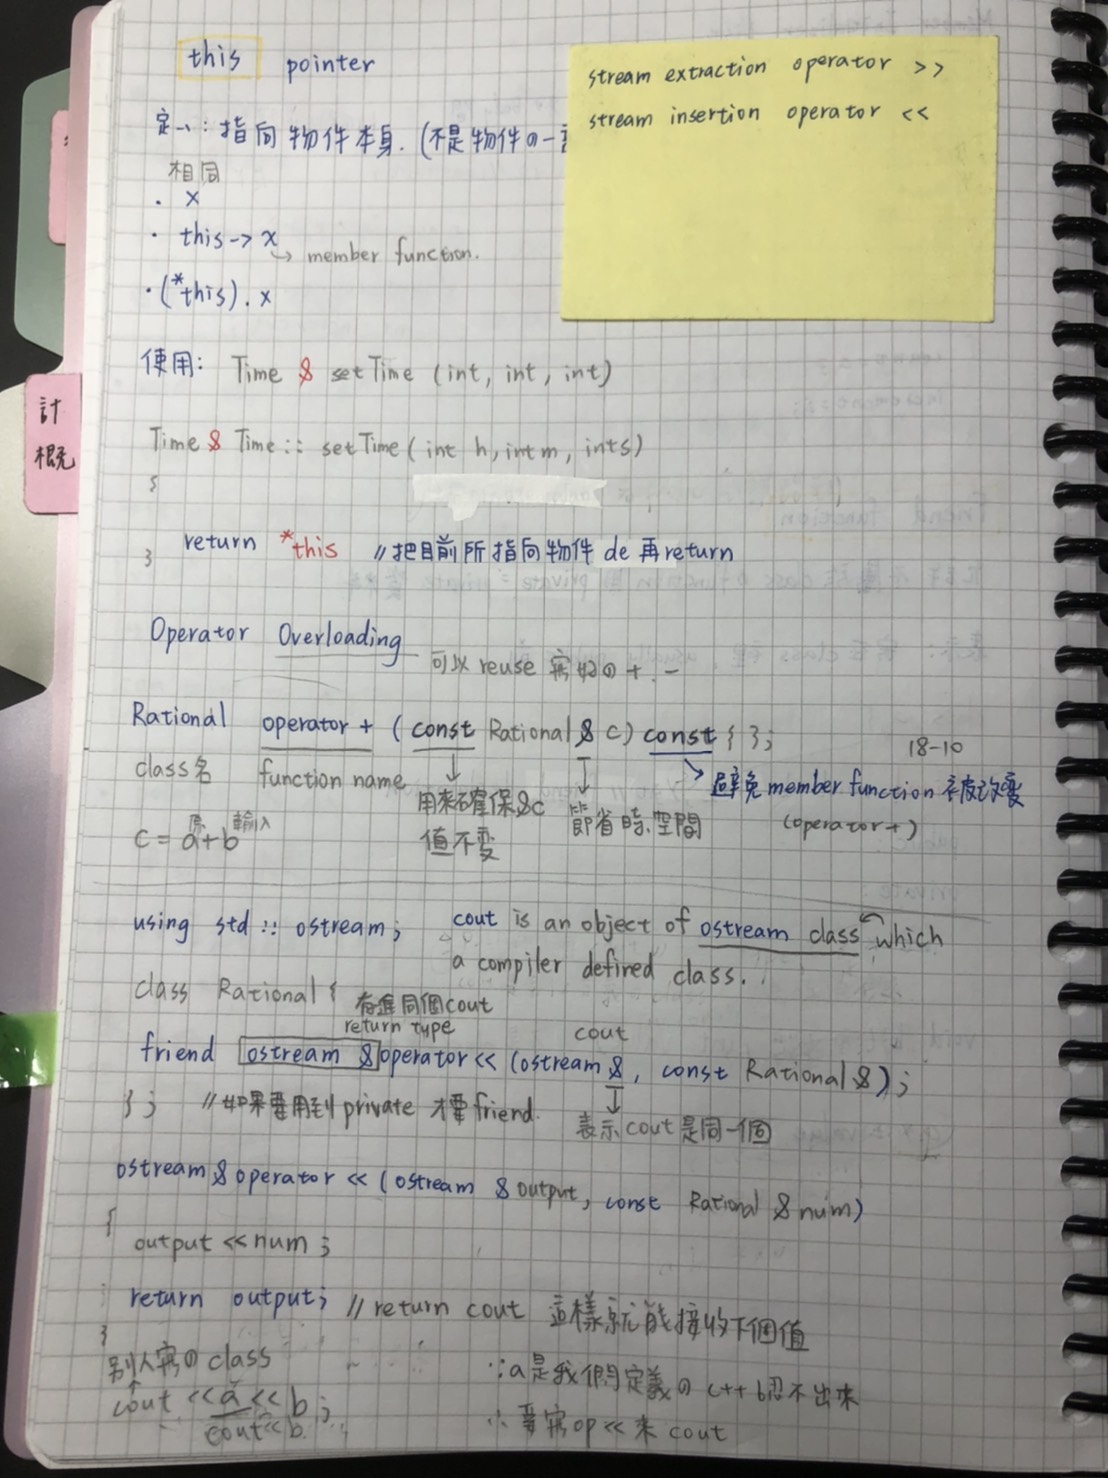 this pointer
stream extraction operator >>
stream insertion operator <<
定義:指向物件本身.(不是物件の一
相同
· x
· this-> x
member function.
·(*this).x
使用: Time & setTime (int, int, int)
計概
Time & Time:: setTime( int h, int m, int s)
{
return *this //把目前所指向物件 de 再 return
}
Operator Overloading
可以 reuse 寫好の + . -
Rational operator + ( const Rational & c) const { };
18-10
class名 function name 用來確保&c值不變 節省時.空間 避免 member function 被改變
(operator+)
原 輸入
c = a+b
using std :: ostream; cout is an object of ostream class which
a compiler defined class.
class Rational {
存進同個cout
return type cout
friend ostream & operator << (ostream &, const Rational &);
}; //如果要用到 private 才要 friend.
表示 cout 是同一個
ostream & operator << ( ostream & output, const Rational & num)
{
output << num ;
return output; //return cout 這樣就能接收下個值
}
別人寫の class
∵a是我們定義の c++ 認不出來
cout << a << b ;
cout << b
∴要寫 op << 來 cout